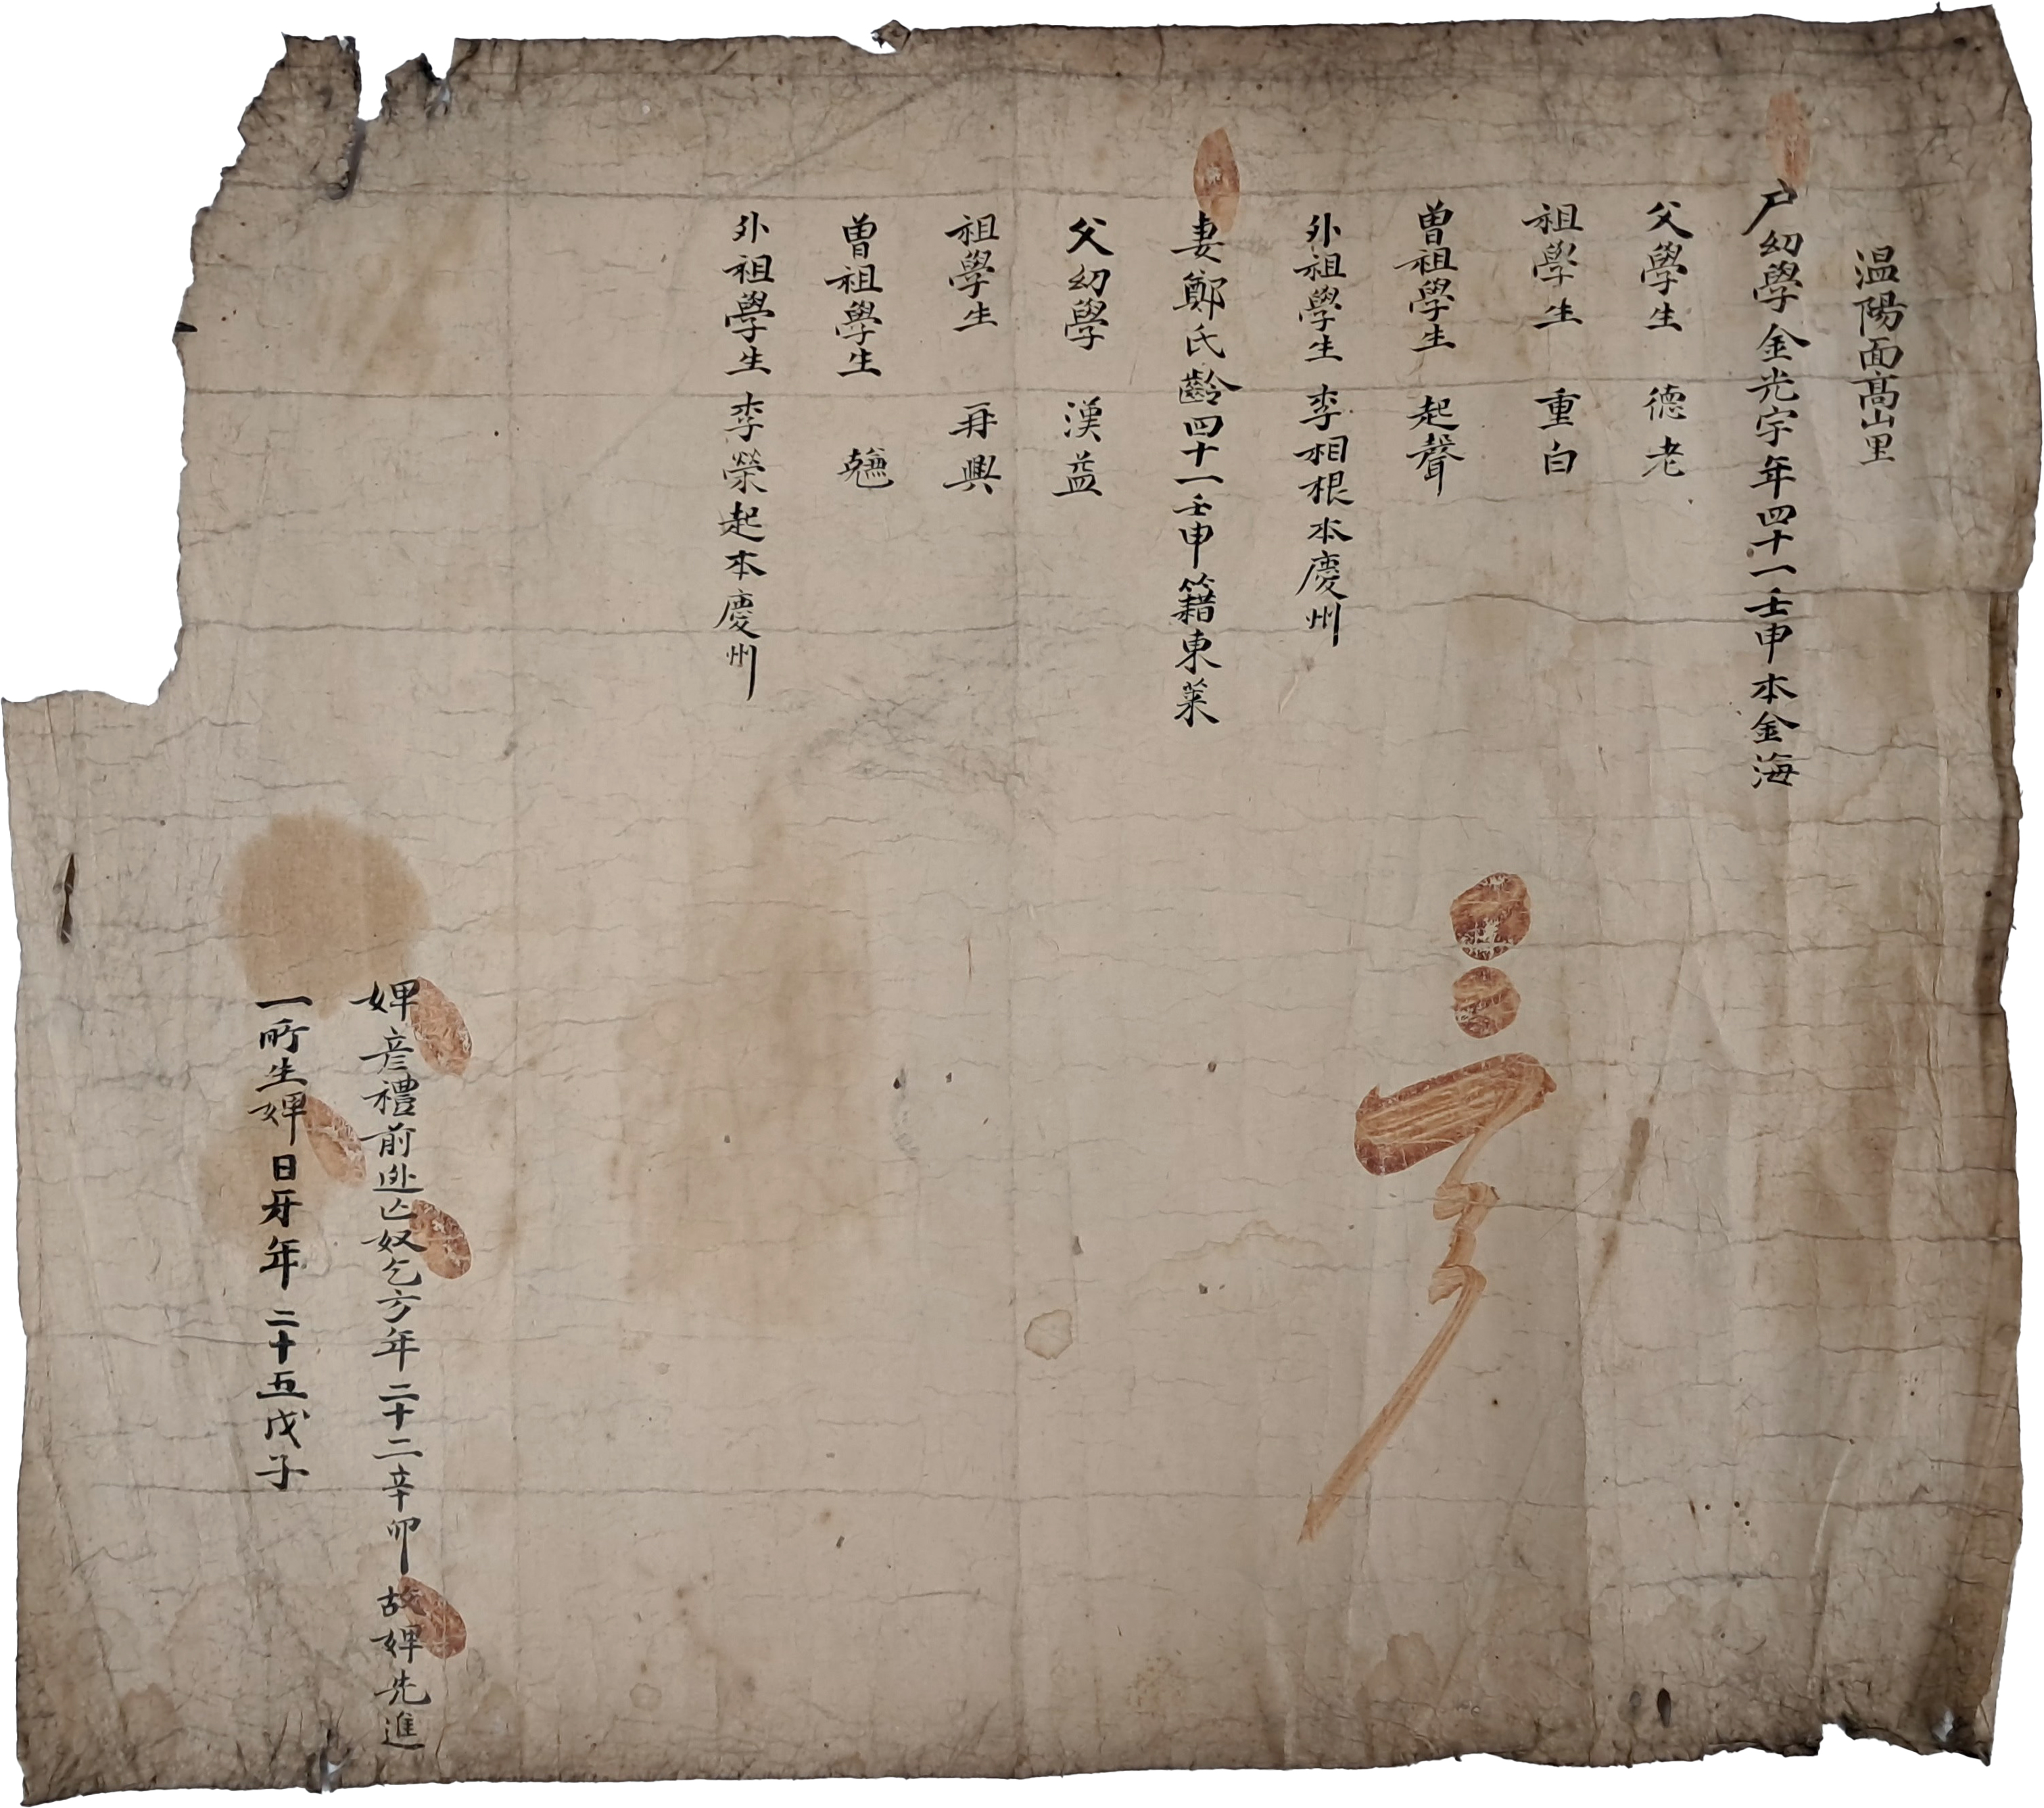 温陽面高山里
戶幼學金光宗年四十一壬申本金海
父學生 德老
祖學生 重白
曾祖學生 起聲
外祖學生 李相根本慶州
妻鄭氏齡四十一壬申籍東萊
父幼學 漢益
祖學生 再興
曾祖學生
外祖學生 李榮起本慶州
婢彦禮前逃亡奴乞方年二十二辛卯故婢先進
一所生婢日牙年二十五戊子